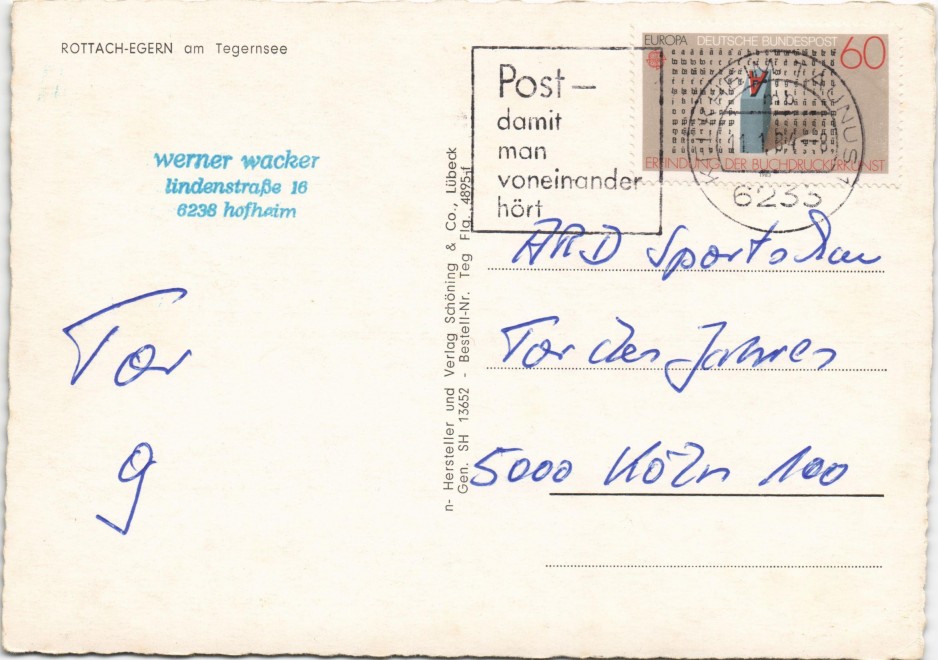 ROTTACH-EGERN am Tegernsee
werner wacker
lindenstraße 16
6238 hofheim
Tor
9
n- Hersteller und Verlag Schöning & Co., Lübeck
Gen. SH 13652 - Bestell-Nr. Teg Flg. 4895 f
Post –
damit
man
voneinander
hört
EUROPA DEUTSCHE BUNDESPOST 60
ERFINDUNG DER BUCHDRUCKERKUNST
TAUNUS
mb
11.1.84-8
6233
ARD Sportschau
Tor des Jahres
5000 Köln 100